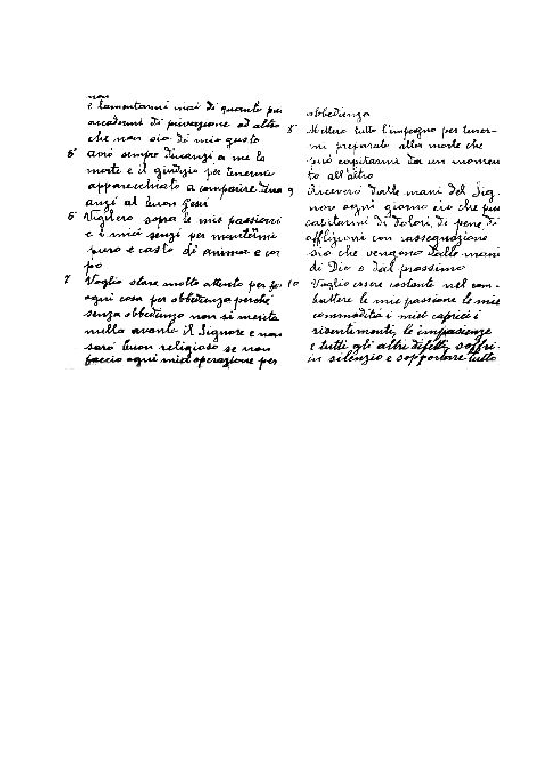 non
e lamentarmi mai di quanto può
accadermi di privazione od altro
che non sia di mio gusto
6 avrò sempre dinanzi a me la
morte e il giudizio per tenermi
apparecchiato a comparire din
anzi al buon Gesù
6 Vigilerò sopra le mie passioni
e i miei sensi per mantenermi
puro e casto di anima e cor
po
7 Voglio stare molto attento per far
ogni cosa per obbedienza perché
senza obbedienza non si merita
nulla avanti il Signore e non
sarò buon religioso se non
faccio ogni mia operazione per
obbedienza
8 Metterò tutto l'impegno per tener-
mi preparato alla morte che
può capitarmi da un momen
to all'altro
9 Riceverò dalle mani del Sig-
nore ogni giorno ciò che può
capitarmi di dolori, di pene di
afflizioni con rassegnazione
sia che vengano dalle mani
di Dio o dal prossimo
10 Voglio essere costante nel com-
battere le mie passione le mie
commodità i miei capricci i
risentimenti, le impazienze
e tutti gli altri difetti, soffri-
in silenzio e sopportare tutto